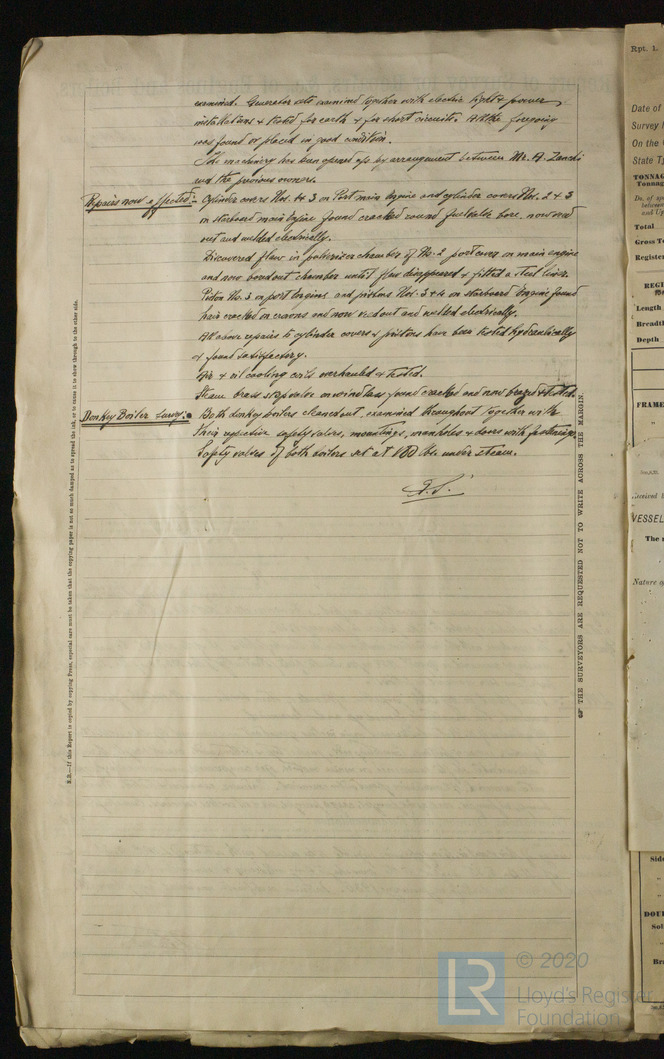 examined. Generator sets examined together with electric light & power
installations & tested for earth & for short circuits. All the foregoing
was found or placed in good condition.
The machinery has been opened up by arrangement between Mr. A. Zanchi
and the previous owners.
Repairs now effected:- Cylinder covers Nos. 3 on Port main Engine and cylinder covers Nos. 2 & 3
on starboard main Engine found cracked round fuel valve bore, now
out and welded electrically.
Discovered flaw in pulverizer chamber of No. 2 port cover on main engine
and now bored out chamber until flaw disappeared & fitted a steel liner.
Piston No. 3 on port Engine, and pistons Nos. 3 & 4 on starboard Engine found
hair cracked on crowns and now out and welded electrically.
All above repairs to cylinder covers & pistons have been tested hydraulically
& found satisfactory.
Air & oil cooling coils overhauled & tested.
Steam brass stop valve on windlass found cracked and now brazed & tested.
Donkey Boiler Survey. Both donkey boilers cleaned out, examined throughout together with
their respective safety valves, mountings, manholes & doors with fastenings.
Safety valves of both boilers set at 100 lbs under steam.
N.B.—If this Report is copied by copying Press, especial care must be taken that the copying paper is not so much damped as to spread the ink, or to cause it to show through to the other side.
THE SURVEYORS ARE REQUESTED NOT TO WRITE ACROSS THE MARGIN.
Rpt. 1.
Date of
Survey
On the
State
TONNAGE
Tonnage
Total
Gross
Register
REGI
Length
Breadth
Depth
FRAME
VESSEL
The
Nature
Side
DOU
© 2020
LR
Lloyd's Register
Foundation